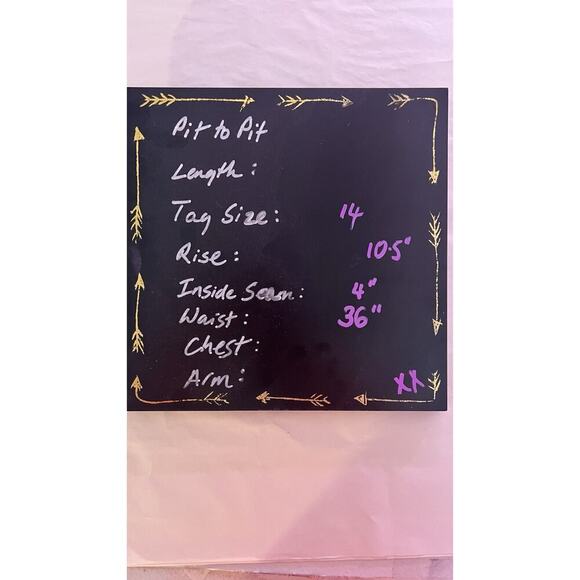 Pit to Pit
Length :
Tag Size : 14
Rise : 10.5"
Inside Seam : 4"
Waist : 36"
Chest :
Arm : XX